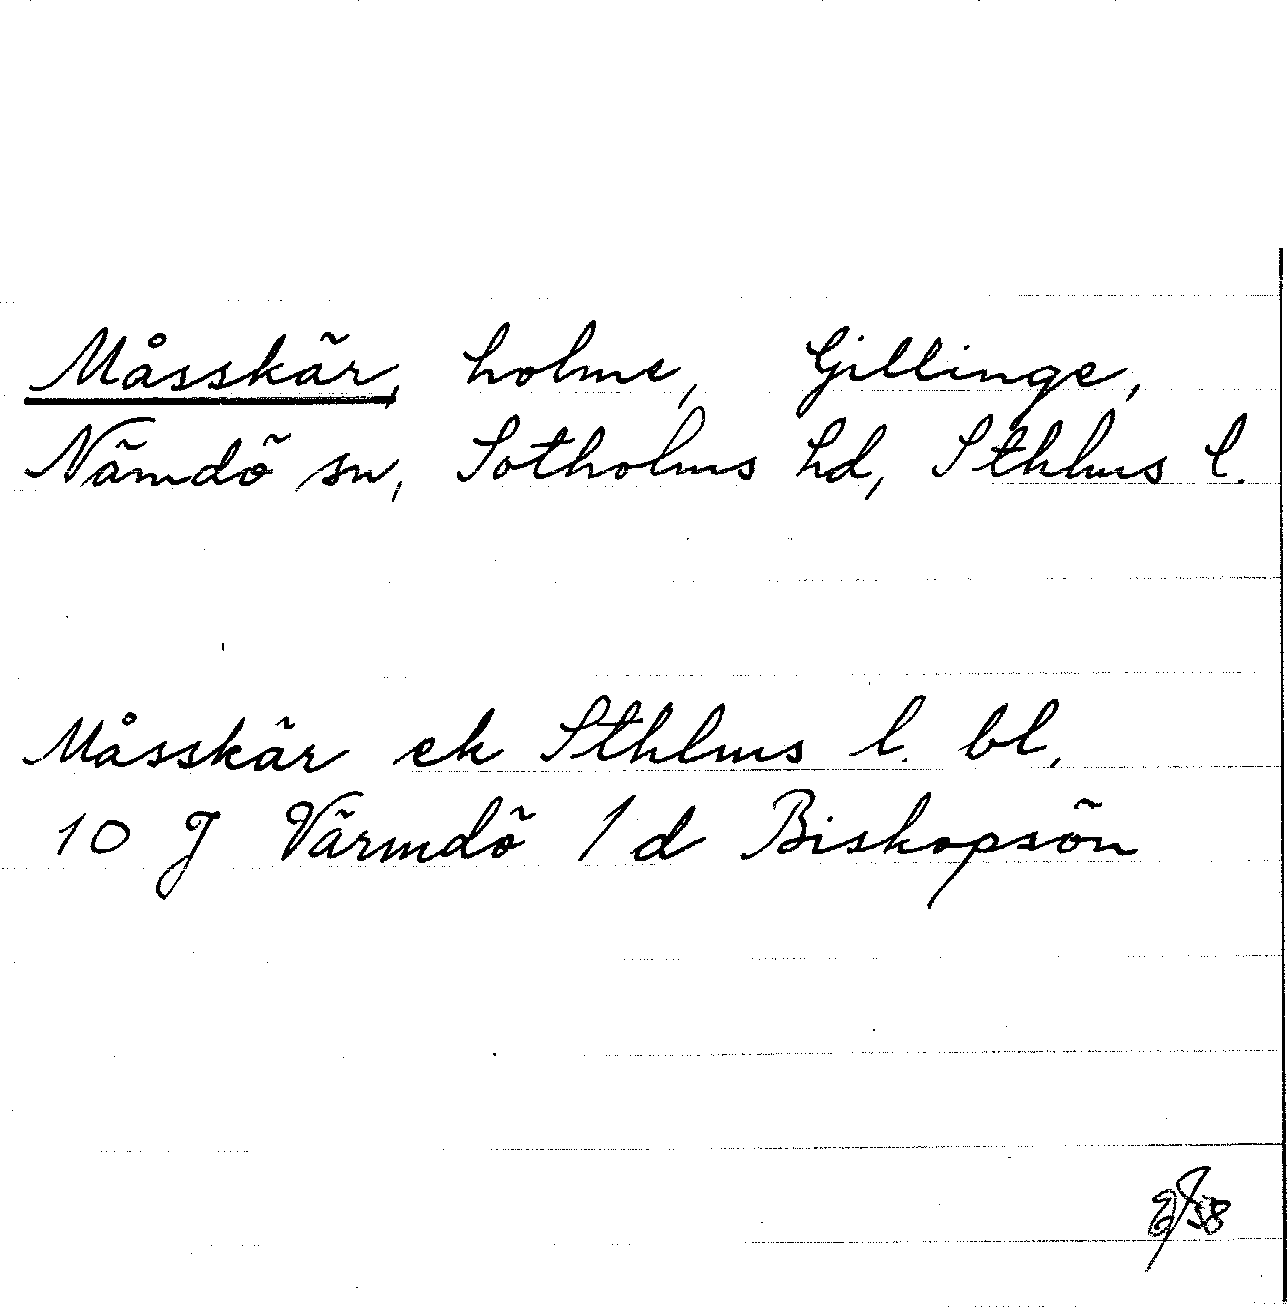 Måsskär, holme, Gillinge,
Nämdö sn, Sotholms hd, Sthlms l.
Måsskär ek Sthlms l. bl.
10 J Värmdö 1 d Biskopsön
58